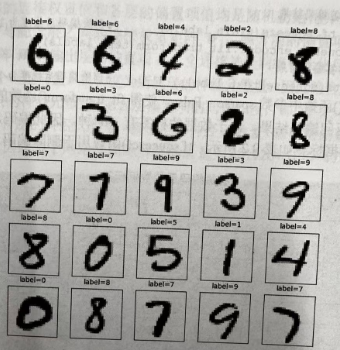 label=6 label=6 label=4 label=2 label=8
6 6 4 2 8
label=0 label=3 label=6 label=2 label=8
0 3 6 2 8
label=7 label=7 label=9 label=3 label=9
7 7 9 3 9
label=8 label=0 label=5 label=1 label=4
8 0 5 1 4
label=0 label=8 label=7 label=9 label=7
0 8 7 9 7